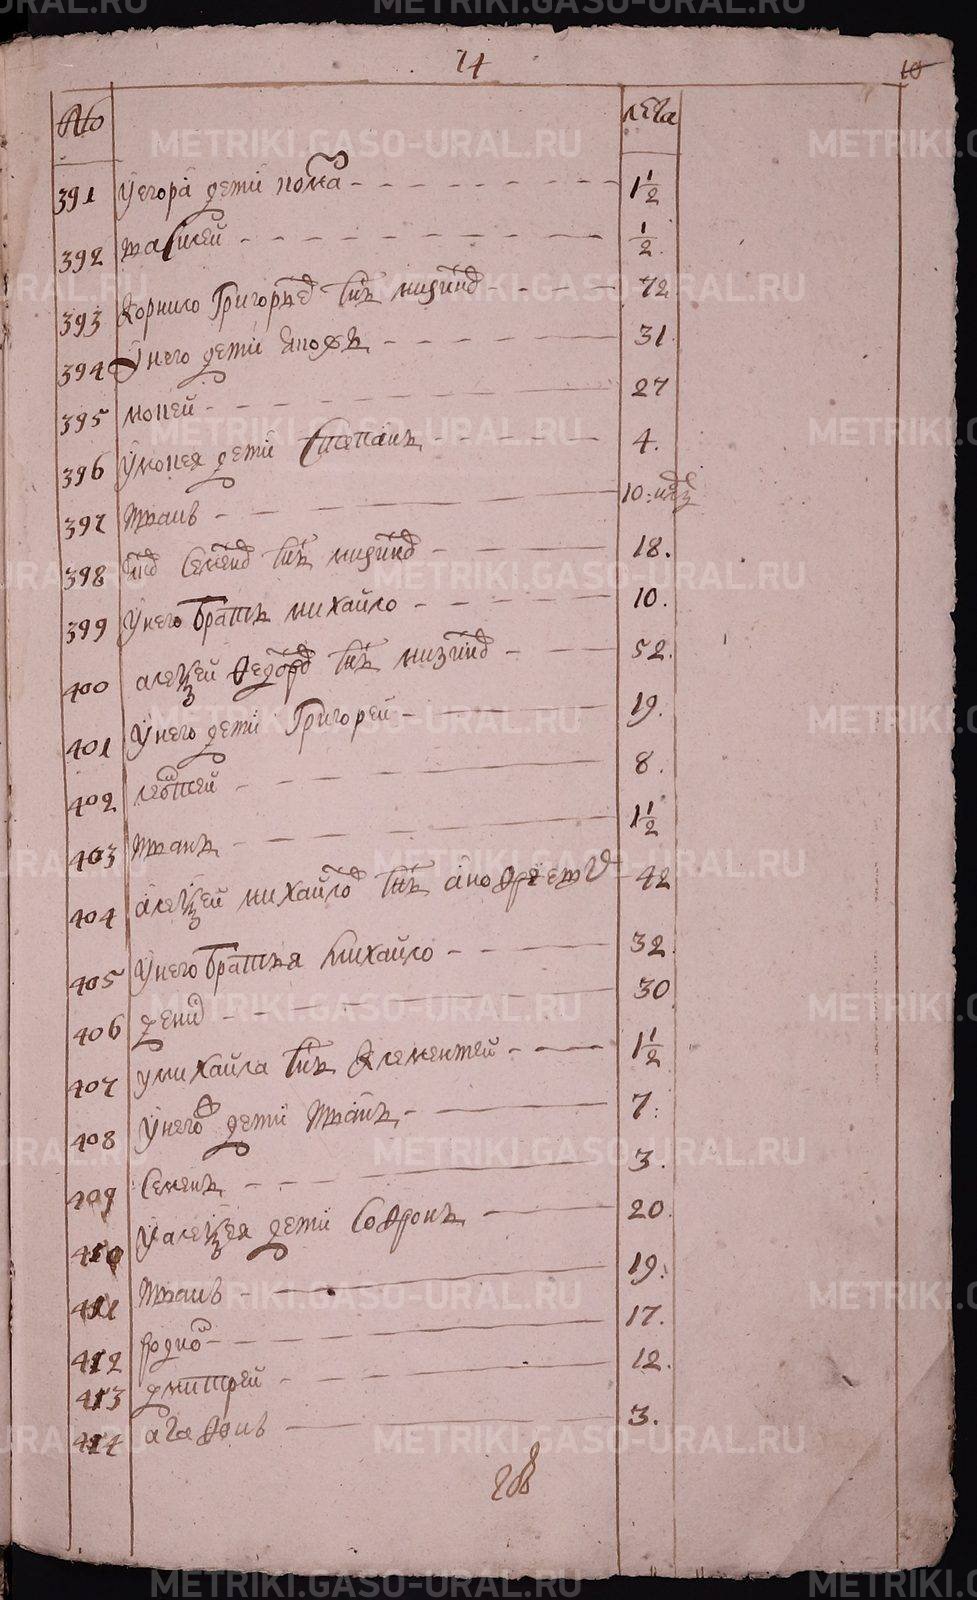 METRIKI.GASO-URAL.RU
14
10
№ лета
391 у егора дети 1 1/2
392 василей 1/2
393 корнило Григорьев снъ мизинов 72
394 у него дети 31
395 мокей 27
396 у мокея дети Степанъ 4.
397 иванъ 10:
398 Семенов снъ мизинов 18.
399 у него братъ михайло 10.
400 алексей Федоров снъ мизинов 52.
401 у него дети Григорей 19.
402 левонтей 8.
403 иванъ 1 1/2
404 алексей михайлов снъ андреевых 42
405 у него братья михайло 32.
406 денис 30
407 у михайла снъ Клементей 1 1/2
408 у него дети иванъ 7:
409 Семенъ 3.
410 у алексея дети Софронъ 20.
411 иванъ 19.
412 родион 17.
413 дмитрей 12.
414 агафонъ 3.